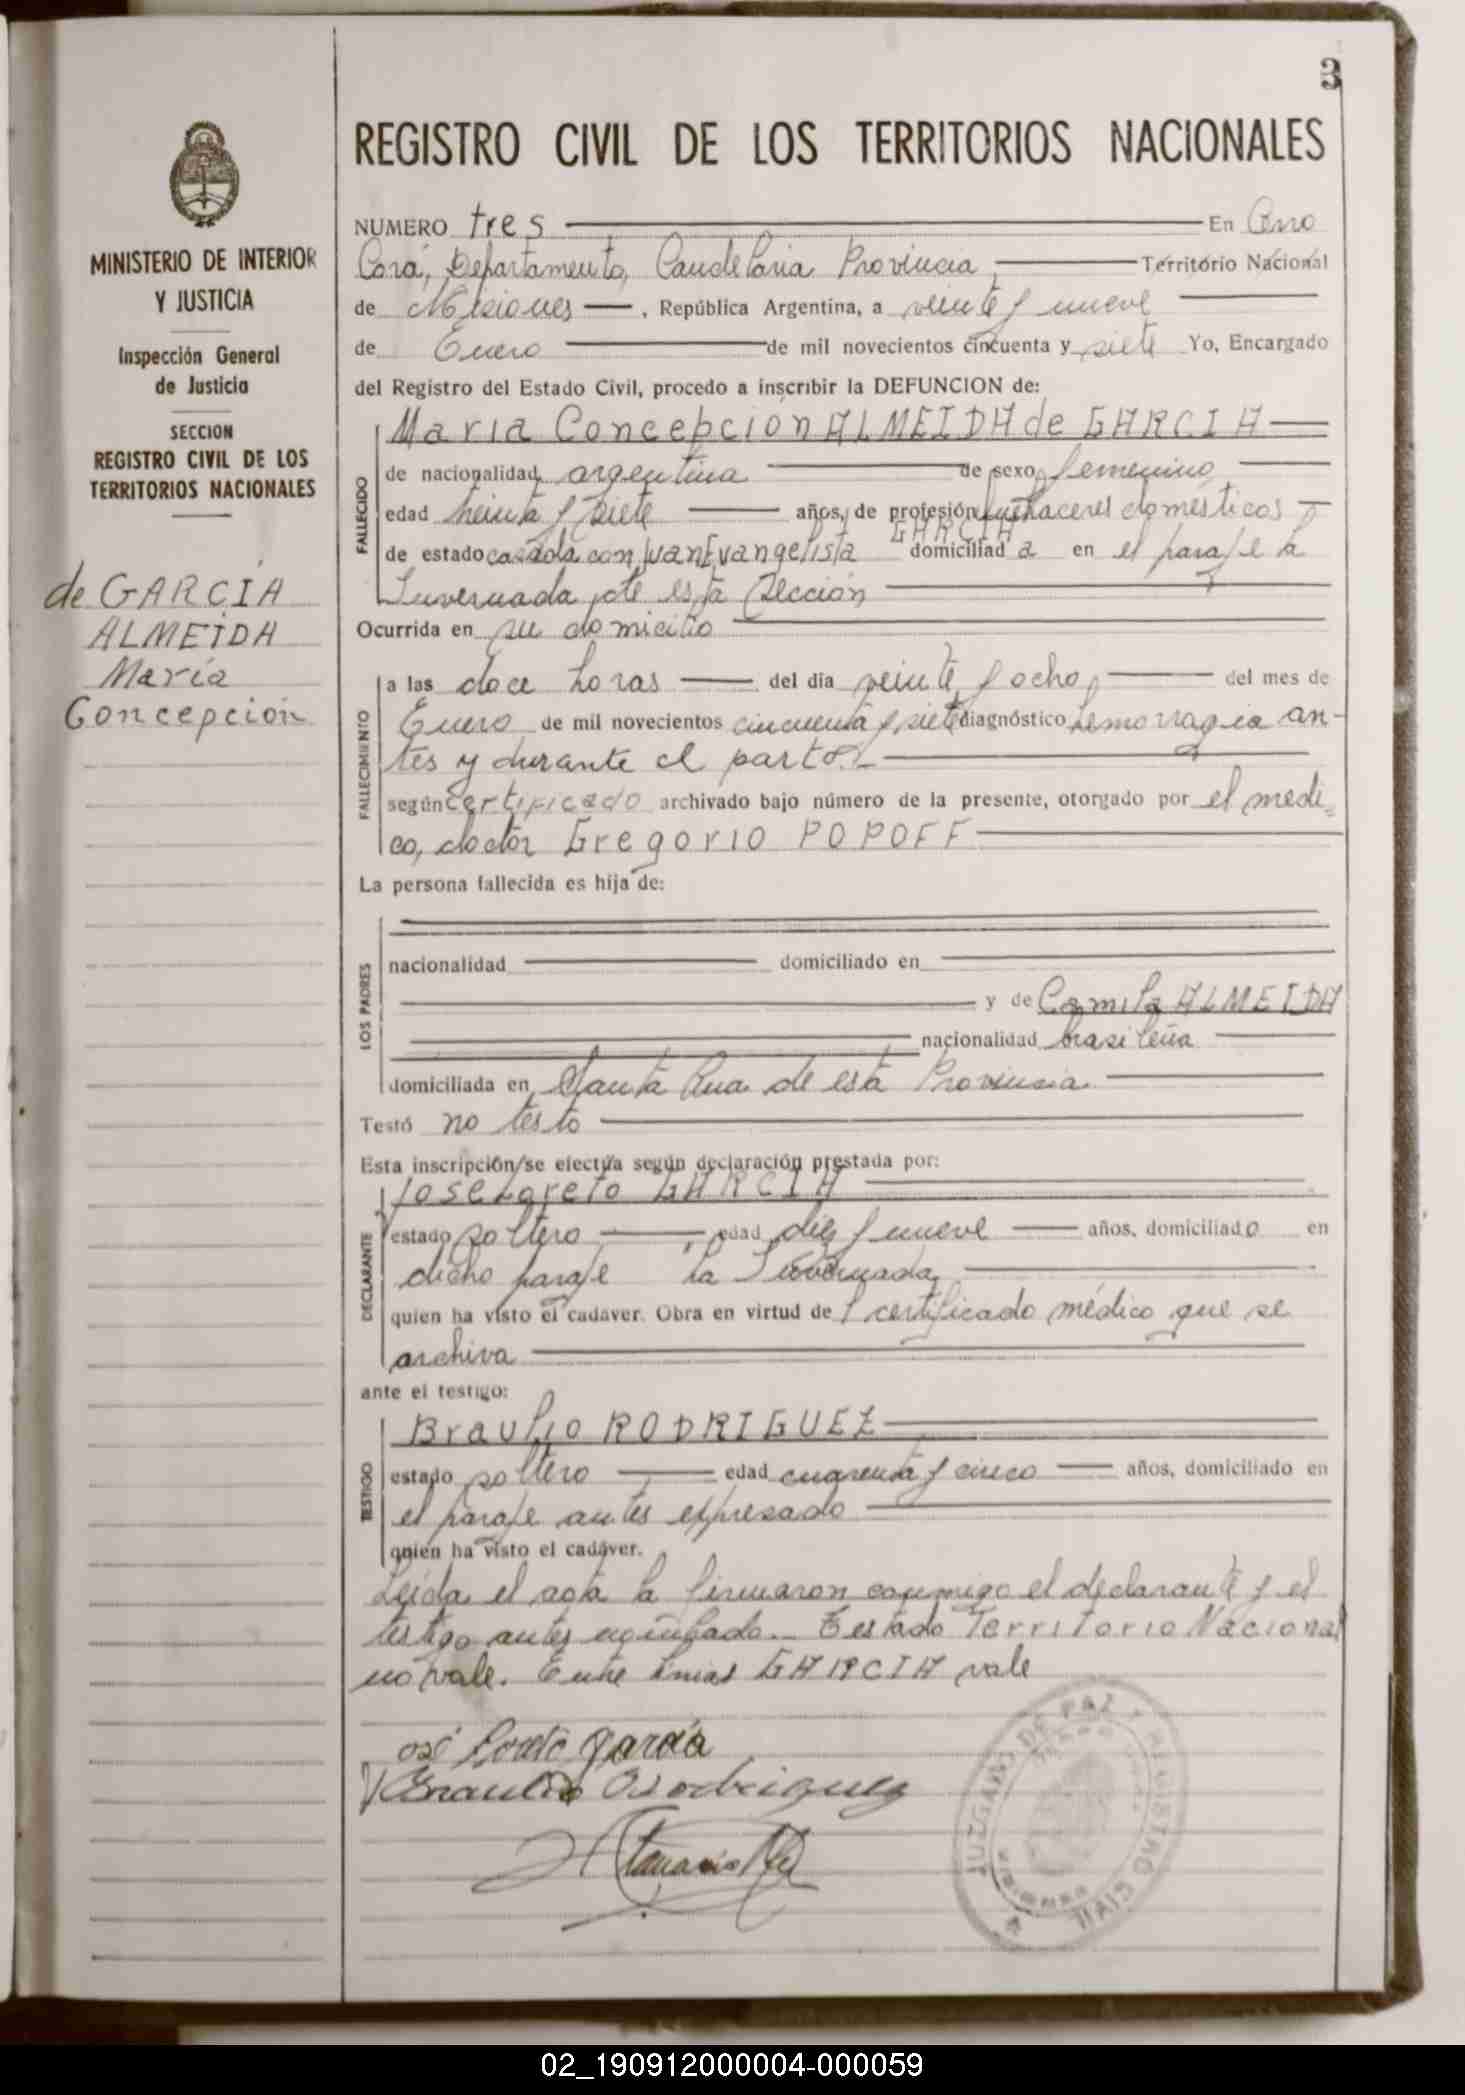 3
REGISTRO CIVIL DE LOS TERRITORIOS NACIONALES
MINISTERIO DE INTERIOR
Y JUSTICIA
Inspección General
de Justicia
SECCION
REGISTRO CIVIL DE LOS
TERRITORIOS NACIONALES
de GARCÍA
ALMEIDA
María
Concepción
NUMERO tres En Cerro
Corá, Departamento, Candelaria Provincia Territorio Nacional
de Misiones, República Argentina, a veinte y nueve
de Enero de mil novecientos cincuenta y siete Yo, Encargado
del Registro del Estado Civil, procedo a inscribir la DEFUNCION de:
FALLECIDO
Maria Concepcion ALMEIDA de GARCIA
de nacionalidad argentina de sexo femenino
edad treinta y siete años, de profesión quehaceres domesticos
GARCIA
de estado casada con Juan Evangelista domiciliad a en el paraje la
Invernada, de esta Sección
Ocurrida en su domicilio
FALLECIMIENTO
a las doce horas del dia veinte y ocho, del mes de
Enero de mil novecientos cincuenta y siete diagnóstico hemorragia an-
tes y durante el parto.
según certificado archivado bajo número de la presente, otorgado por el medi-
co, doctor Gregorio POPOFF
La persona fallecida es hija de:
LOS PADRES
nacionalidad domiciliado en
y de Camila ALMEIDA
nacionalidad brasileña
domiciliada en Santa Ana de esta Provincia
Testó no testo
Esta inscripción se efectúa según declaración prestada por:
DECLARANTE
Jose Loreto GARCIA
estado soltero, edad diez y nueve años, domiciliado en
dicho paraje la Invernada,
quien ha visto el cadaver. Obra en virtud de l certificado médico que se
archiva
ante el testigo:
TESTIGO
Braulio RODRIGUEZ
estado soltero edad cuarenta y cinco años, domiciliado en
el paraje antes expresado
quien ha visto el cadáver.
Leida el acta la firmaron conmigo el declarante y el
testigo antes nombrado.- Testado Territorio Nacional
no vale. Entre lineas GARCIA vale
José Loreto garcía
Braulio Rodriguez
JUZGADO DE PAZ Y REGISTRO CIVIL
MISIONES
02_190912000004-000059